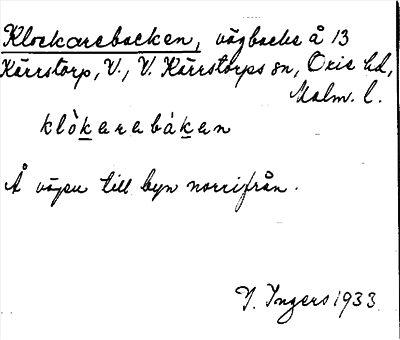 Klockarebacken, vägbacke å 13
Kärrstorp, V., V. Kärrstorps sn, Oxie hd,
Malm. l.
klòkarabákan
Å vägen till byn norrifrån.
I. Ingers 1933.